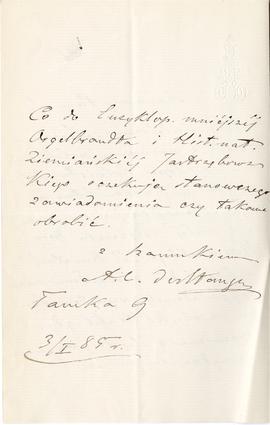 Co do Encyklop. mniejszéj
Orgelbrandta i Hist. nat.
Ziemiańskiéj Jastrzębows-
kiego oczekuję stanowczego
zawiadomienia czy takowe
obrobić.
z szacunkiem
Al.
Tamka 9
3/I 85 r.